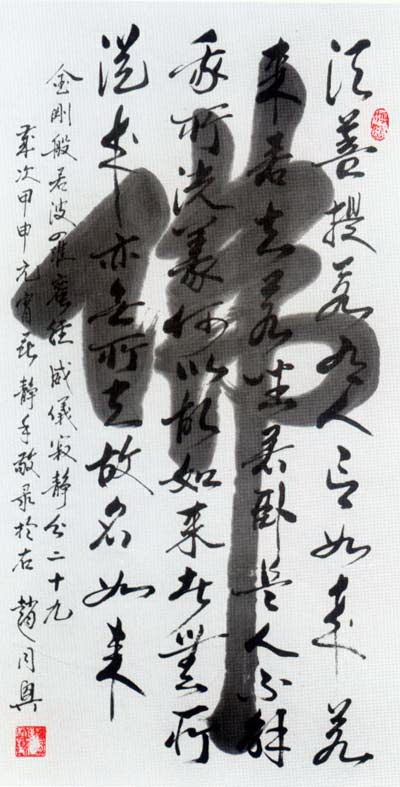 佛
須菩提若有人言如来若
来若去若坐若卧是人不解
我所說義何以故如来者無所
從来亦無所去故名如来
金剛般若波羅蜜經威儀寂靜分二十九
歲次甲申元宵 静手敬录於右 趙 興